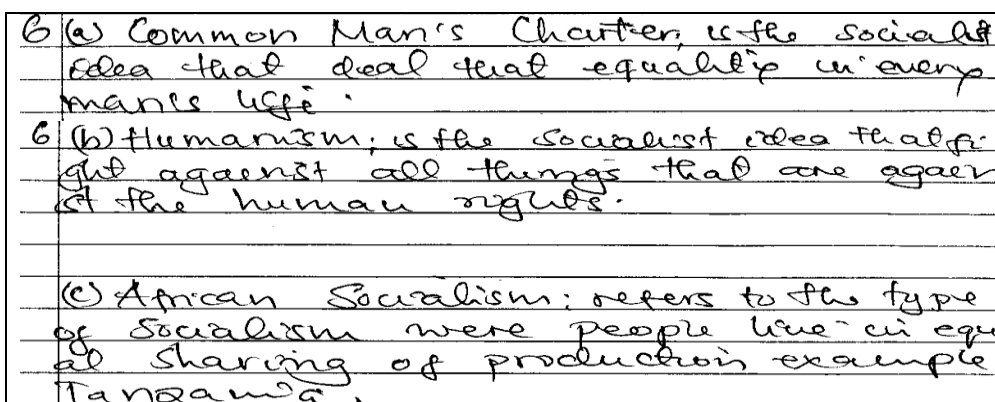 6 (a) Common Man's Charter; is the socialist
idea that deal that equality in every
man's life.
6 (b) Humanism; is the socialist idea that fi
ght against all things that are again
st the human rights.
(c) African Socialism; refers to the type
of Socialism were people live in equ
al sharing of production example
Tanzania.